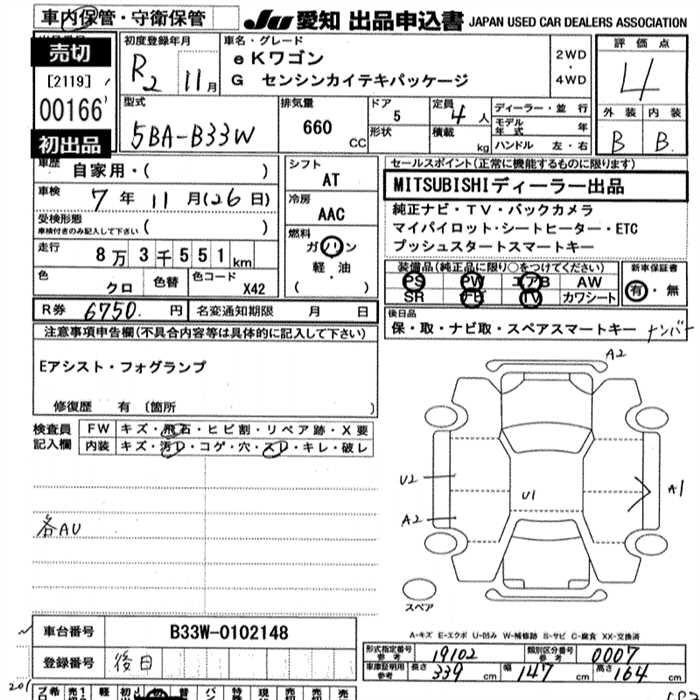 車内保管・守衛保管
JU 愛知 出品申込書 JAPAN USED CAR DEALERS ASSOCIATION
売切
[2119]
00166
初出品
初度登録年月
R2 11月
車名・グレード
eKワゴン
G センシンカイテキパッケージ
2WD
・
4WD
評価点
4
外装 内装
B B
型式
5BA-B33W
排気量
660 CC
ドア
5
形状
定員
4人
積載 kg
ディーラー・並行
モデル年式 年
ハンドル 左・右
車歴
自家用・( )
車検
7年11月(26日)
受検形態
車検付きのみ記入して下さい ( )
走行
8万3千551km
色
クロ
色替
色コード
X42
シフト
AT
冷房
AAC
燃料
ガソリン
軽・油
( )
セールスポイント(正常に機能するものに限ります)
MITSUBISHIディーラー出品
純正ナビ・TV・バックカメラ
マイパイロット・シートヒーター・ETC
プッシュスタートスマートキー
装備品(純正品に限り○をつけてください)
PS PW エアB AW
SR ナビ TV カワシート
新車保証書
有・無
R券 6750.円
名変通知期限 月 日
後日品
保・取・ナビ取・スペアスマートキー ナンバー
注意事項申告欄(不具合内容等は具体的に記入して下さい)
Eアシスト・フォグランプ
修復歴 有〔箇所 〕
検査員記入欄
FW キズ・飛石・ヒビ割・リペア跡・X要
内装 キズ・汚レ・コゲ・穴・スレ・キレ・破レ
各AU
A2
U2
A2
U1
A1
スペア
A-キズ E-エクボ U-凹み W-補修跡 S-サビ C-腐食 XX-交換済
車台番号 B33W-0102148
登録番号 後日
型式指定番号 参考 19102
類別区分番号 参考 0007
車庫証明用参考 長さ 339 cm 幅 147 cm 高さ 164 cm